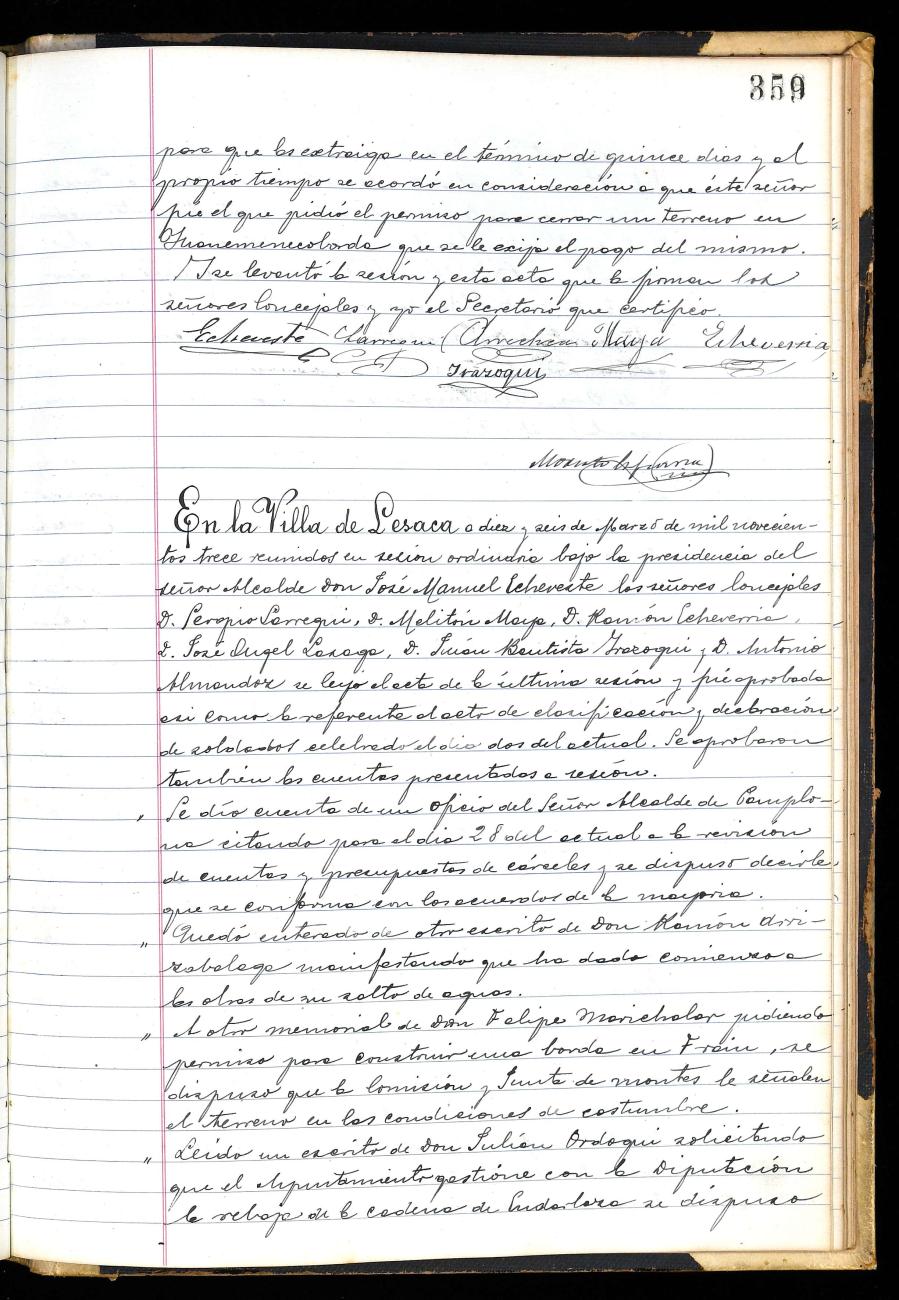 359
para que las extraiga en el término de quince dias y al
propio tiempo se acordó en consideración a que éste señor
fué el que pidió el permiso para cerrar un terreno en
Juanemenecoborda que se le exija el pago del mismo.
Y se levantó la sesión y esta acta que la firman los
señores Concejales y yo el Secretario que certifico.
Echeveste Larregui Arrechea Maya Echeverria
Irazoqui
En la Villa de Lesaca a diez y seis de Marzo de mil novecien-
tos trece reunidos en sesión ordinaria bajo la presidencia del
señor Alcalde Don José Manuel Echeveste los señores Concejales
D. Sergio Larregui, D. Melitón Maya, D. Ramón Echeverria,
D. José Angel Lasaga, D. Juan Bautista Irazoqui y D. Antonio
Almandoz se leyó el acta de la última sesión y fué aprobada
asi como la referente al acto de clasificación y declaración
de soldados celebrado el dia dos del actual. Se aprobaron
también las cuentas presentadas a sesión.
" Se dió cuenta de un oficio del Señor Alcalde de Pamplo-
na citando para el dia 28 del actual a la revisión
de cuentas y presupuestos de cárceles y se dispuso decirle
que se conforma con los acuerdos de la mayoria.
" Quedó enterado de otro escrito de Don Ramón Arri-
zabalaga manifestando que ha dado comienzo a
las obras de su salto de aguas.
" A otro memorial de Don Felipe Marichalar pidiendo
permiso para construir una borda en Frain, se
dispuso que la Comisión y Junta de montes le señalen
el terreno en las condiciones de costumbre.
" Leido un escrito de Don Julián Ordoqui solicitando
que el Ayuntamiento gestione con la Diputación
la rebaja de la cadena de Endarlaza se dispuso